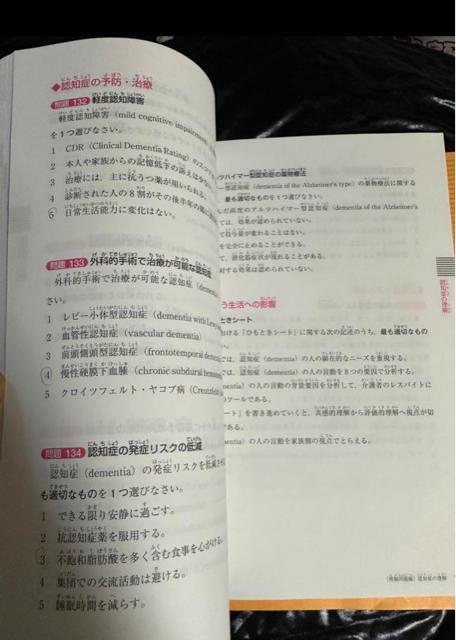 ◆認知症の予防・治療
問題 132 軽度認知障害
軽度認知障害(mild cognitive impairment)
を1つ選びなさい。
1 CDR(Clinical Dementia Rating)のスコア
2 本人や家族からの記憶低下の訴えは
3 治療には、主に抗うつ薬が用いられる。
4 診断された人の8割がその後半年の
5 日常生活能力に変化はない。
問題 133 外科的手術で治療が可能な認知症
外科的手術で治療が可能な認知症
さい。
1 レビー小体型認知症(dementia with Lewy
2 血管性認知症(vascular dementia)
3 前頭側頭型認知症(frontotemporal
4 慢性硬膜下血腫(chronic subdural
5 クロイツフェルト・ヤコブ病(Creutzfeldt
問題 134 認知症の発症リスクの低減
認知症(dementia)の発症リスクを低減
も適切なものを1つ選びなさい。
1 できる限り安静に過ごす。
2 抗認知症薬を服用する。
3 不飽和脂肪酸を多く含む食事を心がける。
4 集団での交流活動は避ける。
5 睡眠時間を減らす。
ツハイマー型認知症の薬物療法
型認知症(dementia of the Alzheimer's type)の薬物療法に関する
最も適切なものを1つ選びなさい。
高度のアルツハイマー型認知症(dementia of the Alzheimer's
では、効果が認められていない。
ても投与量が変わることはない。
を完全に止めることができる。
て、消化器症状が現れることがある。
対する効果は認められていない。
う生活への影響
ときシート
ける「ひもときシート」に関する次の記述のうち、最も適切なもの
い。
では、認知症(dementia)の人の潜在的なニーズを重視する。
では、認知症(dementia)の人の言動を8つの要因で分析する。
mentia)の人の言動の背景要因を分析して、介護者のレスパイトに
ツールである。
ート」を書き進めていくと、共感的理解から評価的理解へ視点が切
である。
entia)の人の言動を家族側の視点でとらえる。
認知症の理解
[模擬問題編]認知症の理解